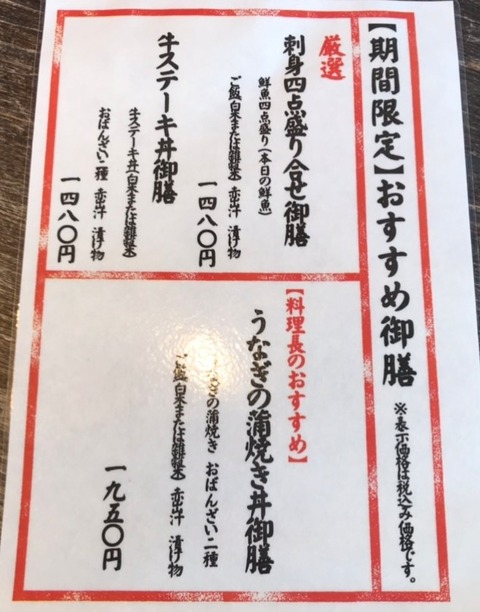 【期間限定】おすすめ御膳
※表示価格は税込み価格です。
厳選
刺身四点盛り合せ御膳
鮮魚四点盛り(本日の鮮魚)
ご飯(白米または雑穀米) 赤出汁 漬け物
一四八〇円
牛ステーキ丼御膳
牛ステーキ丼(白米または雑穀米)
おばんざい二種 赤出汁 漬け物
一四八〇円
【料理長のおすすめ】
うなぎの蒲焼き丼御膳
ぎの蒲焼き おばんざい二種
ご飯(白米または雑穀米) 赤出汁 漬け物
一九五〇円